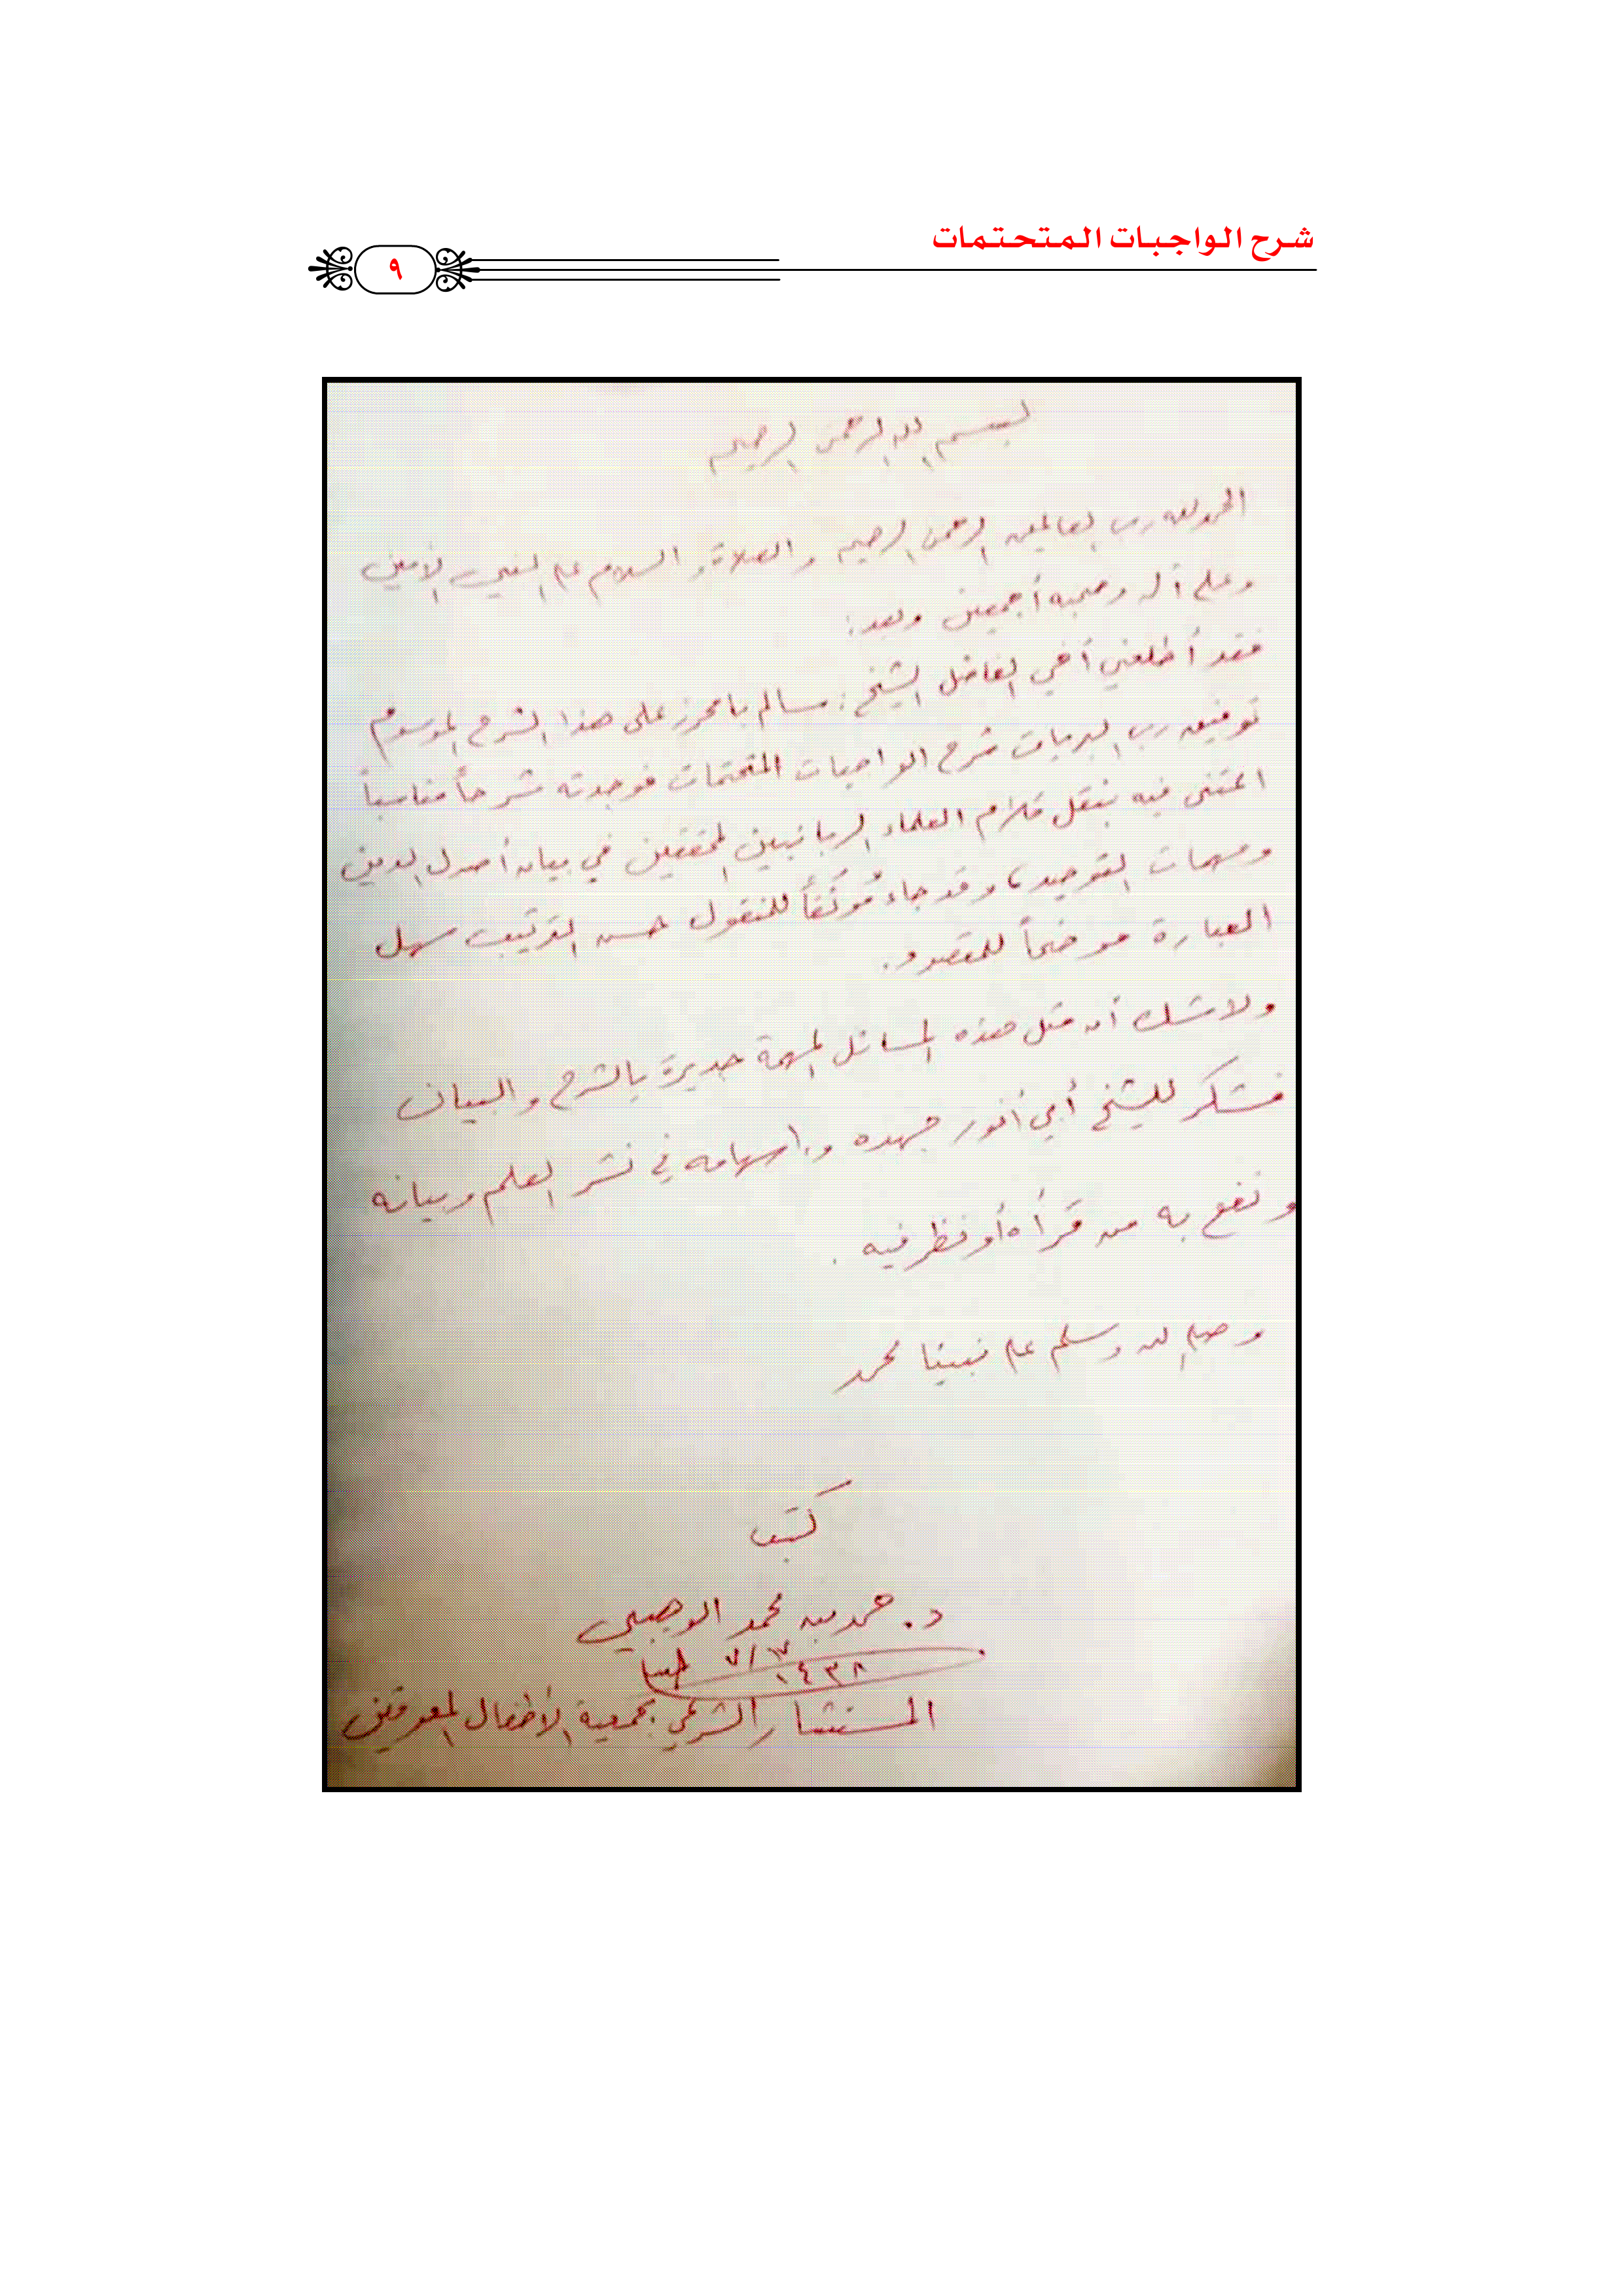 شرح الواجبات المتحتمات
٩
بسم الله الرحمن الرحيم
الحمد لله رب العالمين الرحمن الرحيم والصلاة والسلام على النبي الأمين
وعلى آله وصحبه أجمعين وبعد:
فقد أطلعني أخي الفاضل الشيخ: سالم بامحرز على هذا الشرح الموسوم
توفيق رب البريات شرح الواجبات المتحتمات فوجدته شرحاً مناسباً
اعتنى فيه بنقل كلام العلماء الربانيين المحققين في بيان أصول الدين
ومهمات التوحيد، وقد جاء مُوَثَّقاً للنقول حسن الترتيب سهل
العبارة موضحاً للمقصود.
ولا شك أن مثل هذه المسائل المهمة جديرة بالشرح والبيان
فشكر للشيخ أبي أنور جهده وإسهامه في نشر العلم وبيانه
ونفع به من قرأه أو نظر فيه.
وصلى الله وسلم على نبينا محمد
كتبه
د. حمد بن محمد الوهيبي
١٤٣٨
المستشار الشرعي بجمعية الأطفال المعوقين